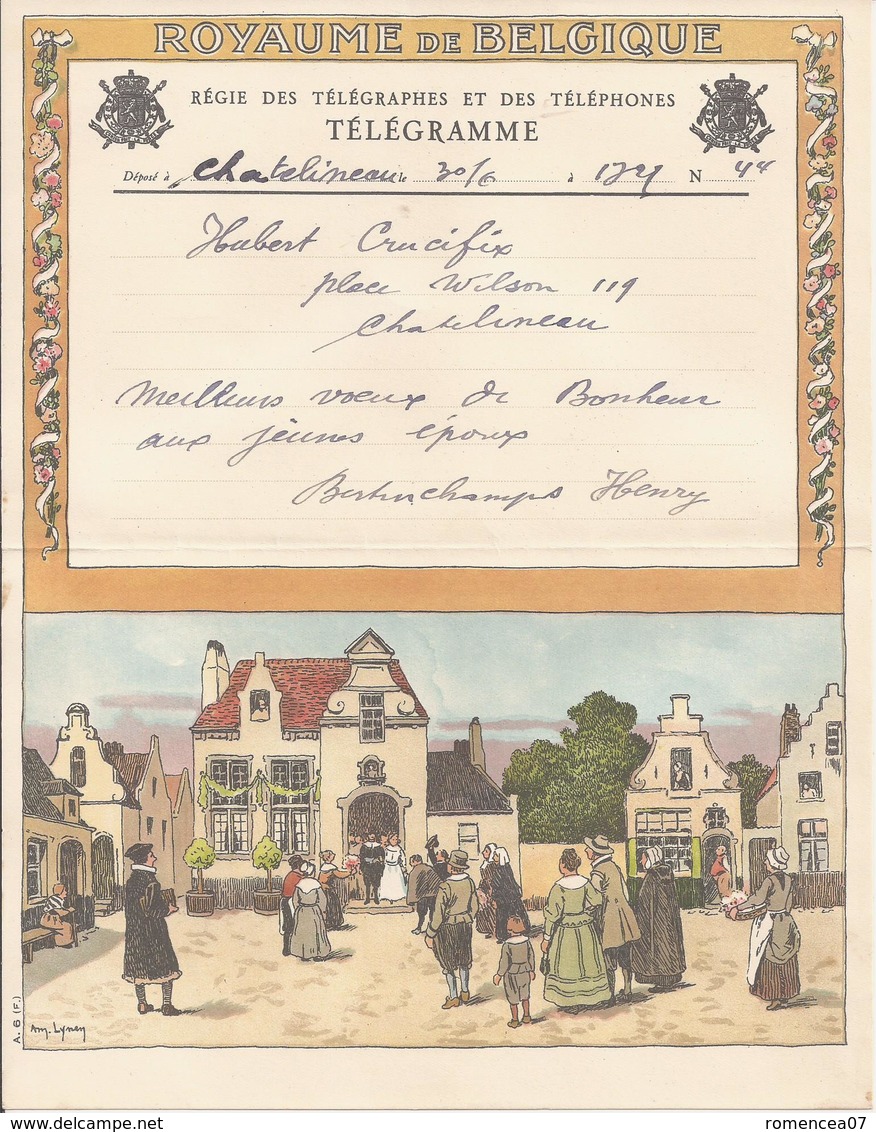 ROYAUME DE BELGIQUE
RÉGIE DES TÉLÉGRAPHES ET DES TÉLÉPHONES
TÉLÉGRAMME
Déposé à Chatelineau le 30/6 à 1721 N 44
Hubert Crucifix
place Wilson 119
Chatelineau
Meilleurs voeux de Bonheur
aux jeunes époux
Bertinchamps Henry
A. 6 (F.)
Am. Lynen
delcampe.net
romencea07